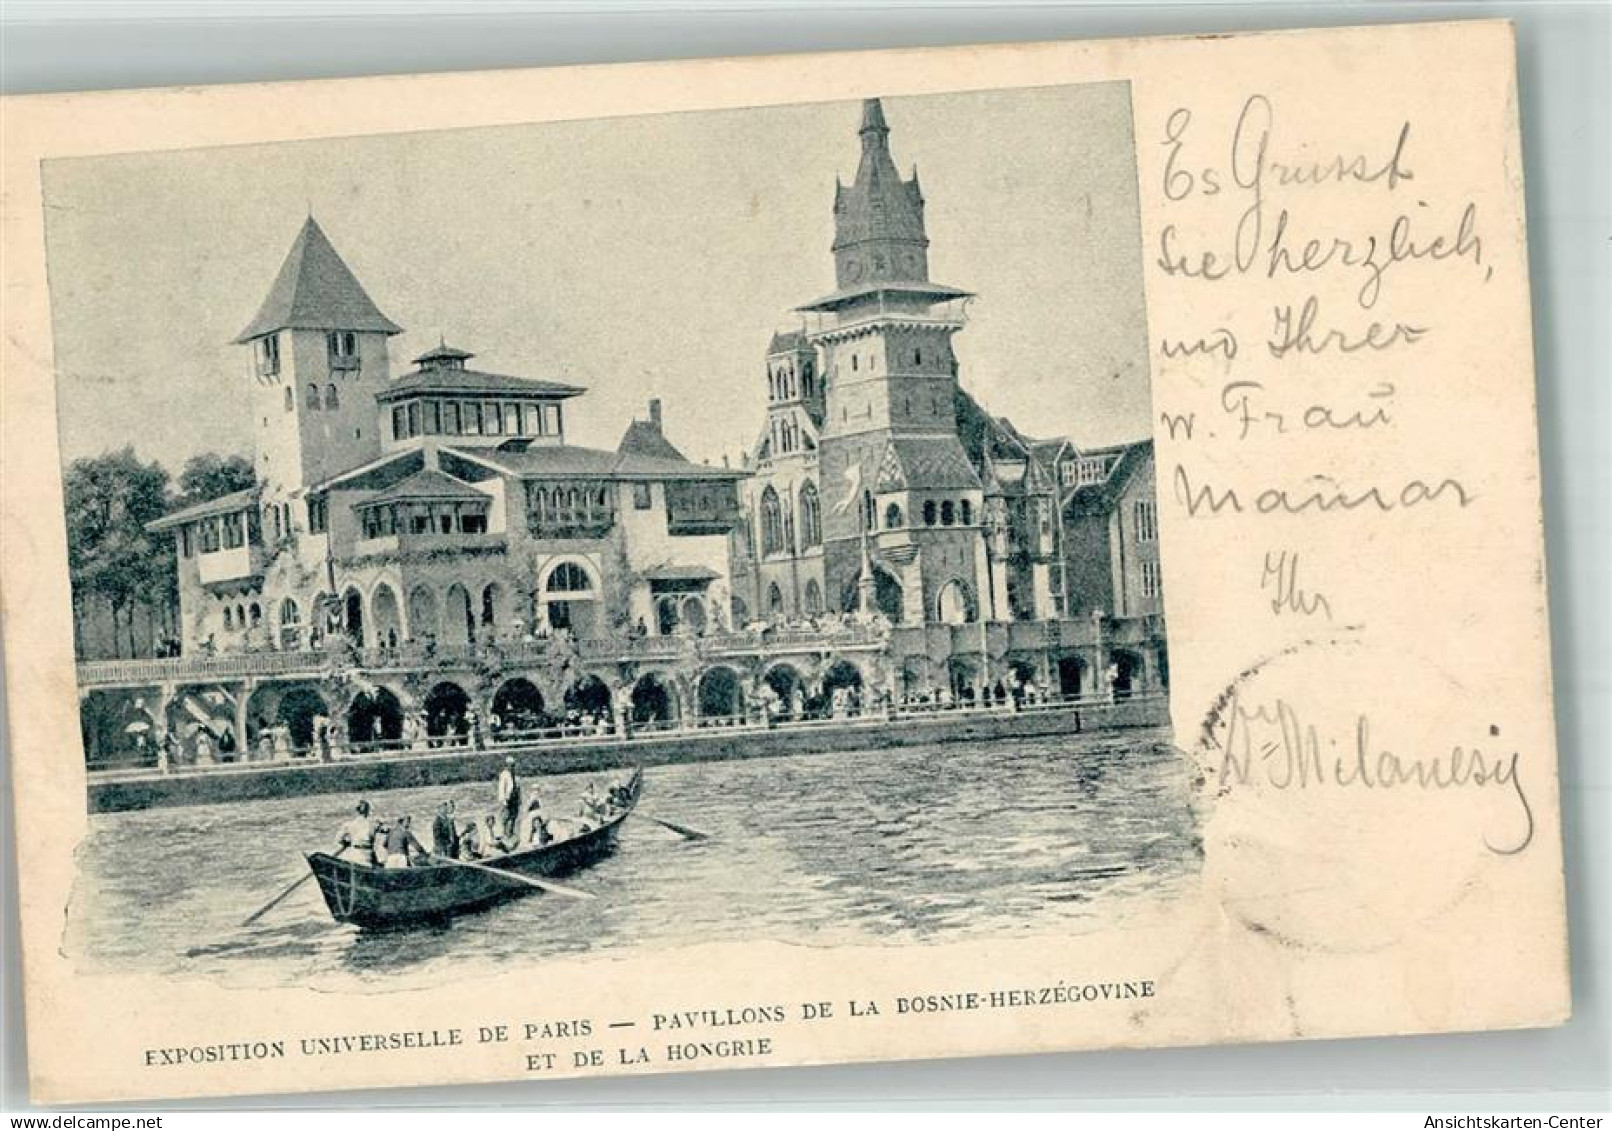 Es Grüsst
Sie herzlich,
und Ihrer
w. Frau
Mamar
Ihr
Dr Milanesij
EXPOSITION UNIVERSELLE DE PARIS — PAVILLONS DE LA BOSNIE-HERZÉGOVINE
ET DE LA HONGRIE
www.delcampe.net
Ansichtskarten-Center